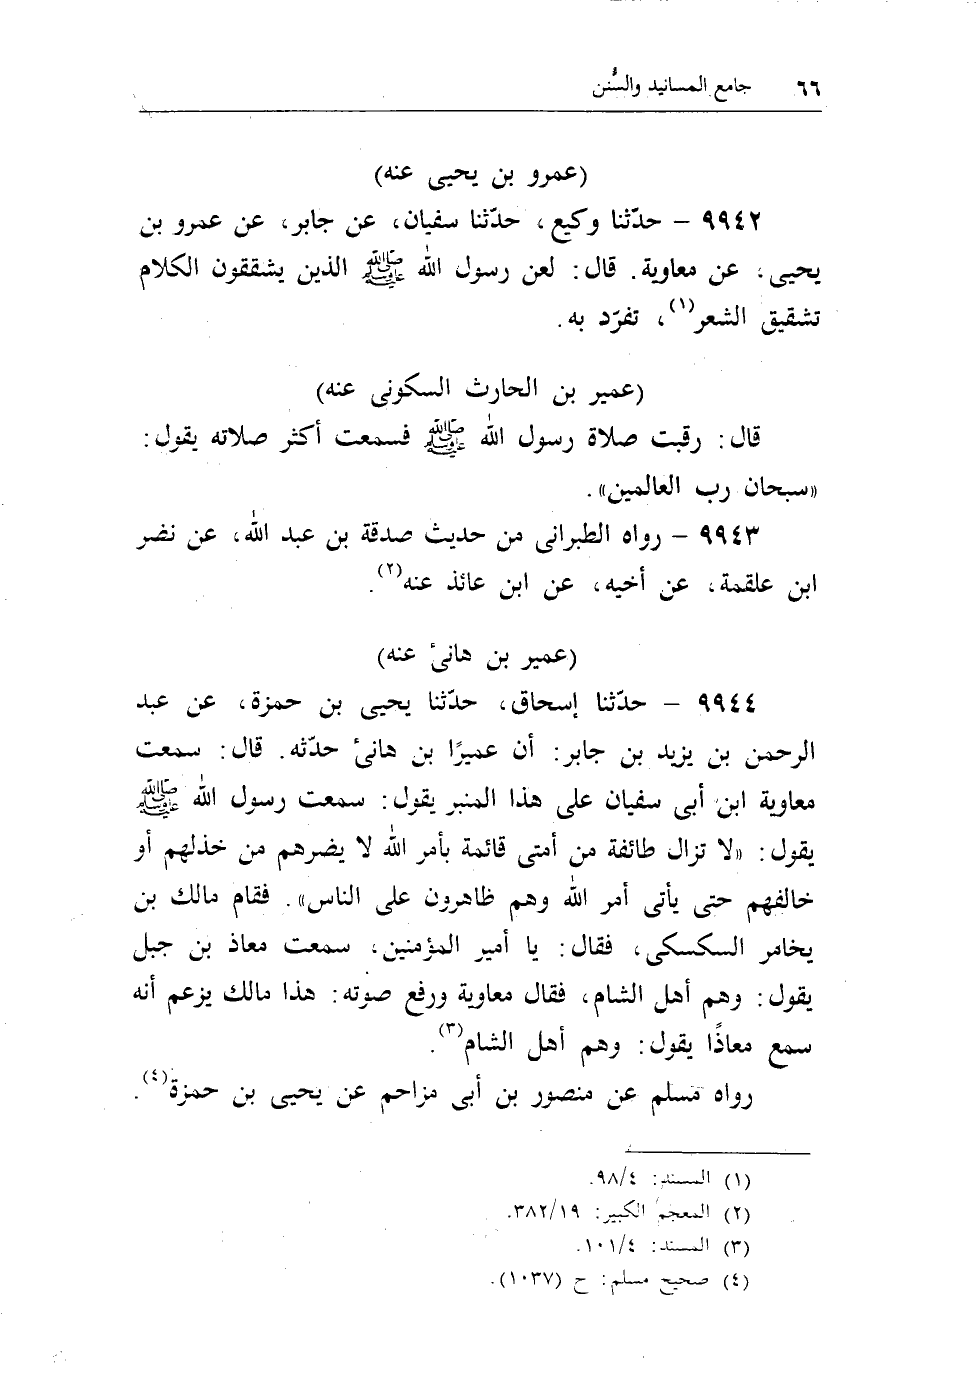 ٦٦ جامع المسانيد والسُّنن
(عمرو بن يحيى عنه)
٩٩٤٢ – حدّثنا وكيع، حدّثنا سفيان، عن جابر، عن عمرو بن
يحيى، عن معاوية. قال: لعن رسول الله ﷺ الذين يشققون الكلام
تشقيق الشعر(١)، تفرّد به.
(عمير بن الحارث السكونى عنه)
قال: رقبت صلاة رسول الله ﷺ فسمعت أكثر صلاته يقول:
«سبحان رب العالمين».
٩٩٤٣ – رواه الطبرانى من حديث صدقة بن عبد الله، عن نضر
ابن علقمة، عن أخيه، عن ابن عائذ عنه(٢).
(عمير بن هانئ عنه)
٩٩٤٤ – حدّثنا إسحاق، حدّثنا يحيى بن حمزة، عن عبد
الرحمن بن يزيد بن جابر: أن عميرًا بن هانئ حدّثه. قال: سمعت
معاوية ابن أبى سفيان على هذا المنبر يقول: سمعت رسول الله ﷺ
يقول: «لا تزال طائفة من أمتى قائمة بأمر الله لا يضرهم من خذلهم أو
خالفهم حتى يأتى أمر الله وهم ظاهرون على الناس». فقام مالك بن
يخامر السكسكى، فقال: يا أمير المؤمنين، سمعت معاذ بن جبل
يقول: وهم أهل الشام، فقال معاوية ورفع صوته: هذا مالك يزعم أنه
سمع معاذًا يقول: وهم أهل الشام(٣).
رواه مسلم عن منصور بن أبى مزاحم عن يحيى بن حمزة(٤).
(١) المسند: ٩٨/٤.
(٢) المعجم الكبير: ٣٨٢/١٩.
(٣) المسند: ١٠١/٤.
(٤) صحيح مسلم: ح (١٠٣٧).